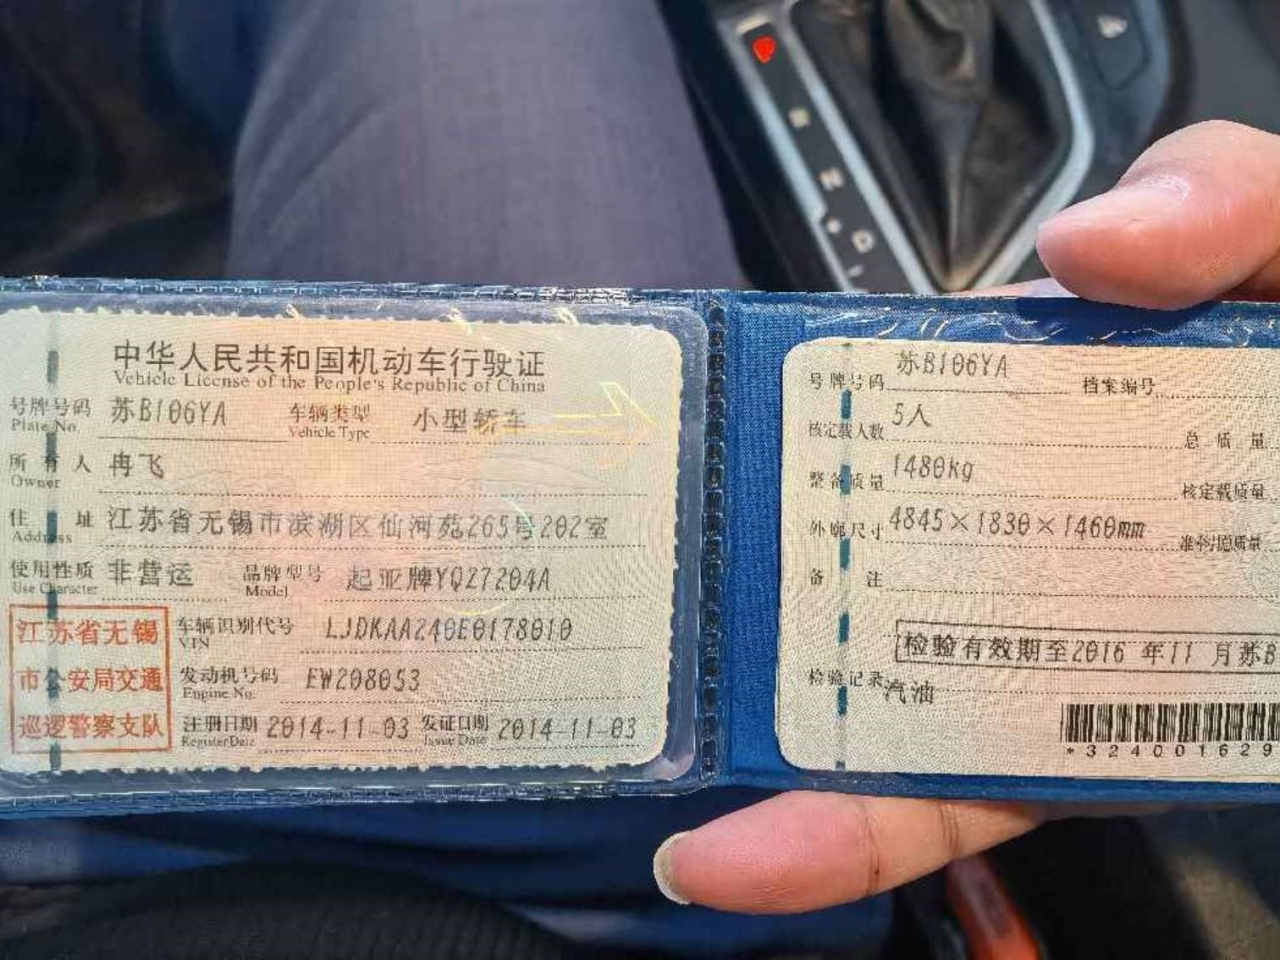 中华人民共和国机动车行驶证
Vehicle License of the People's Republic of China
号牌号码 苏B106YA 车辆类型 小型轿车
Plate No. Vehicle Type
所有人 冉飞
Owner
住址 江苏省无锡市滨湖区仙河苑265号202室
Address
使用性质 非营运 品牌型号 起亚牌YQZ7204A
Use Character Model
江苏省无锡
市公安局交通
巡逻警察支队
车辆识别代号 LJDKAA240E0178010
VIN
发动机号码 EW208053
Engine No.
注册日期 2014-11-03 发证日期 2014-11-03
Register Date Issue Date
号牌号码 苏B106YA 档案编号
核定载人数 5人 总质量
整备质量 1480kg 核定载质量
外廓尺寸 4845×1830×1460mm 准牵引总质量
备注
检验有效期至2016 年11 月苏B
检验记录
汽油
*324001629
R
N
D